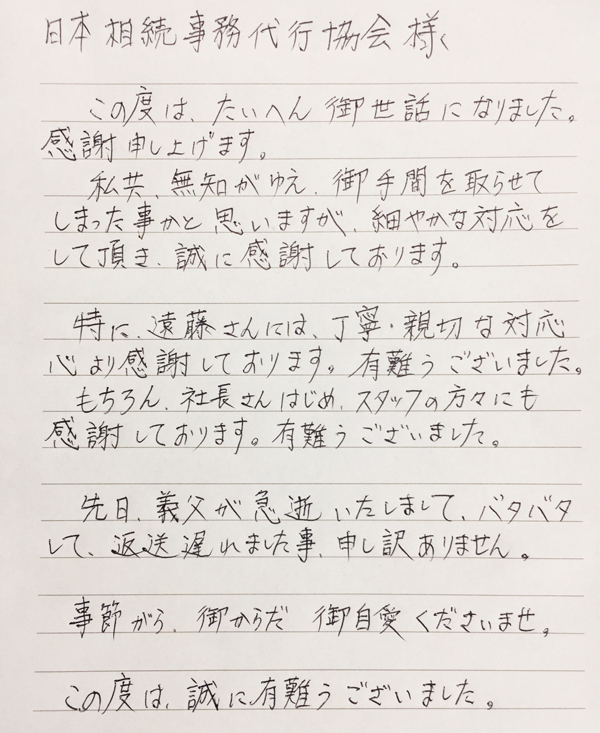 日本相続事務代行協会様
この度は、たいへん御世話になりました。
感謝申し上げます。
私共、無知がゆえ、御手間を取らせて
しまった事かと思いますが、細やかな対応を
して頂き、誠に感謝しております。
特に、遠藤さんには、丁寧・親切な対応
心より感謝しております。有難うございました。
もちろん、社長さんはじめ、スタッフの方々にも
感謝しております。有難うございました。
先日、義父が急逝いたしまして、バタバタ
して、返送遅れました事、申し訳ありません。
事節がら、御からだ 御自愛くださいませ。
この度は、誠に有難うございました。